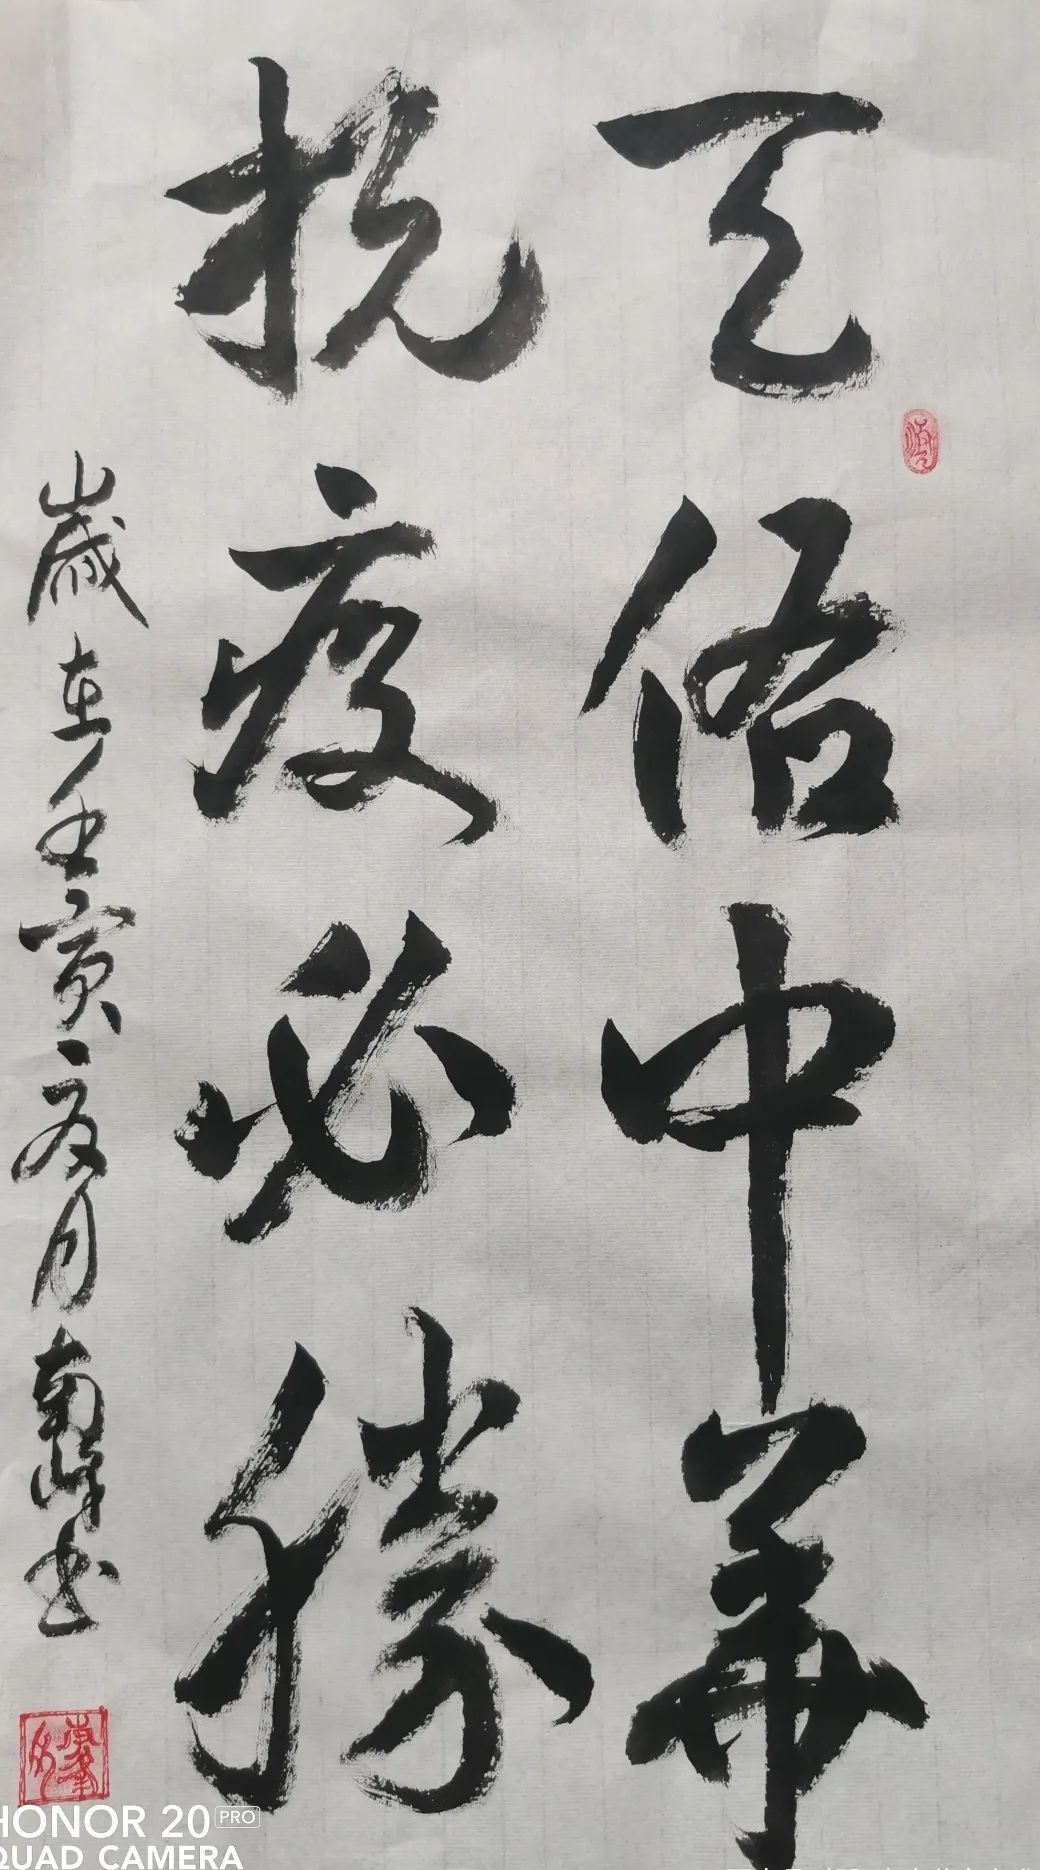 天佑中華
抗疫必勝
歲在壬寅夏月南峰书
HONOR 20 PRO
QUAD CAMERA